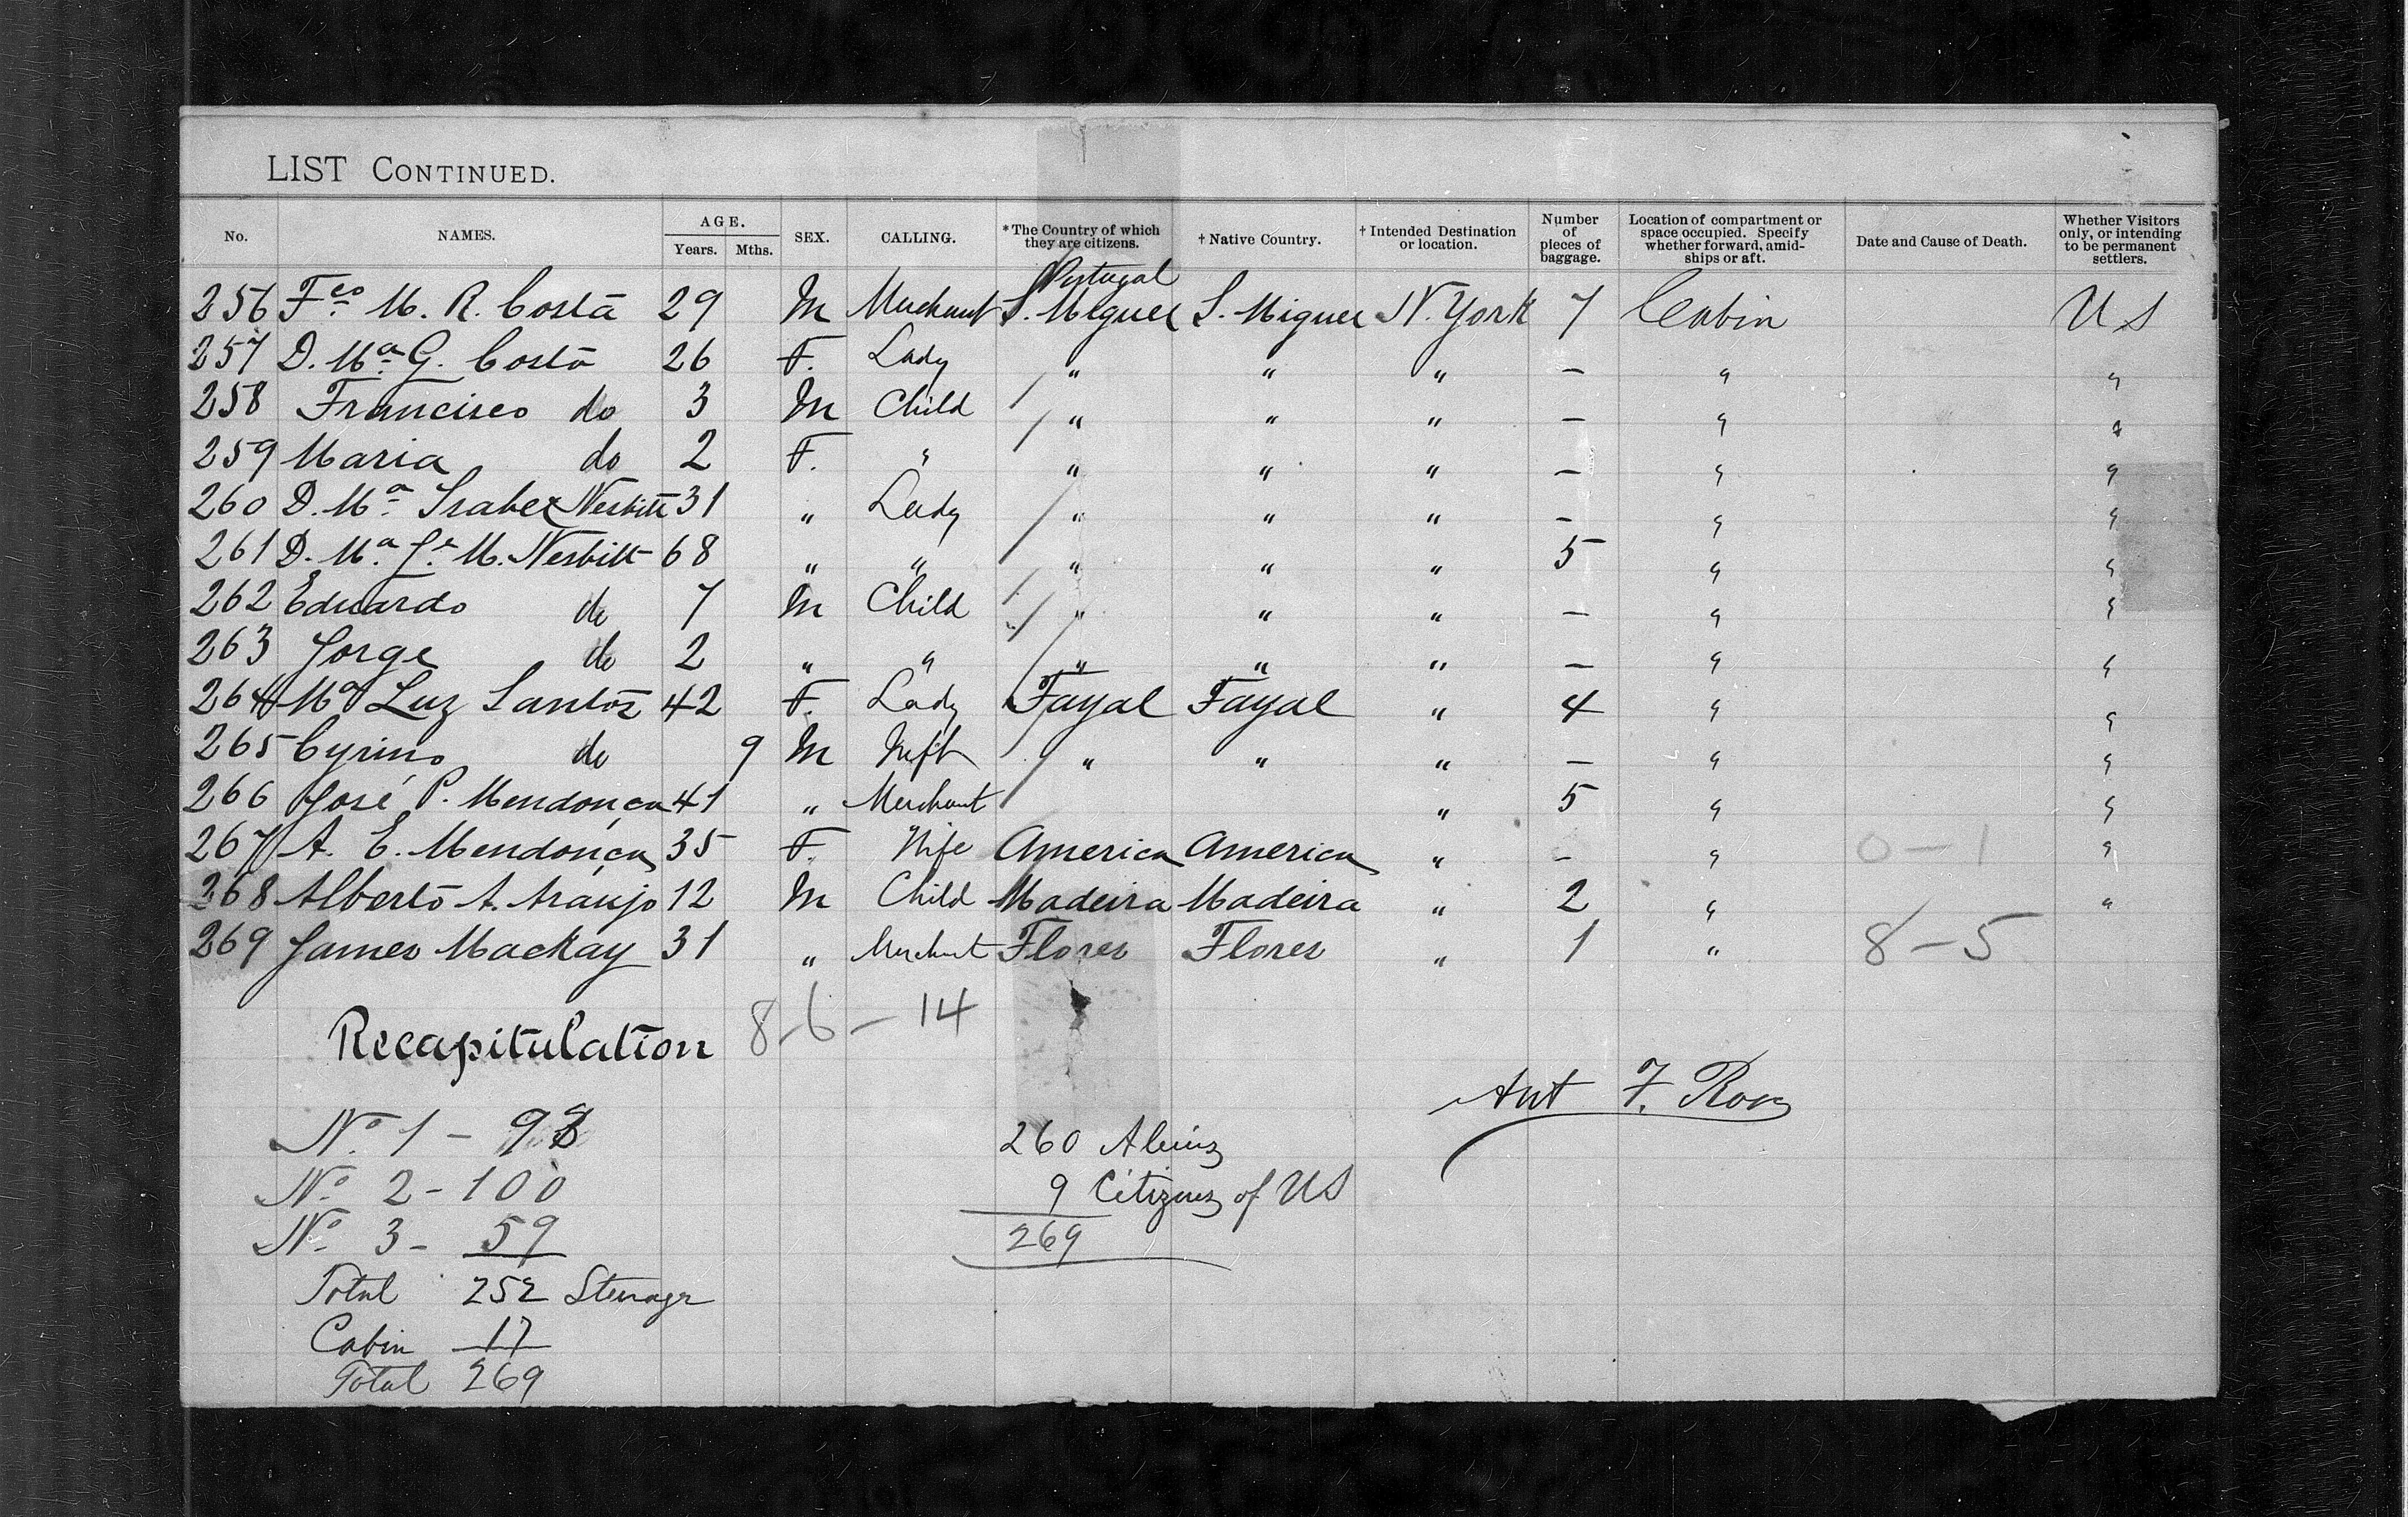 LIST CONTINUED.
No. NAMES. AGE. Years. Mths. SEX. CALLING. *The Country of which they are citizens. †Native Country. †Intended Destination or location. Number of pieces of baggage. Location of compartment or space occupied. Specify whether forward, amidships or aft. Date and Cause of Death. Whether Visitors only, or intending to be permanent settlers.
Portugal
256 Fco M. R. Costa 29 M Merchant S. Miguel S. Miguel N. York 7 Cabin U S
257 D. Ma G. Costa 26 F. Lady " " " — " "
258 Francisco do 3 M Child " " " — " "
259 Maria do 2 F. " " " " — " "
260 D. Ma Isabel Nesbitt 31 " Lady " " " — " "
261 D. Ma J. M. Nesbitt 68 " " " " " 5 " "
262 Eduardo do 7 M Child " " " — " "
263 Jorge do 2 " " " " " — " "
264 Ma Luz Santos 42 F. Lady Fayal Fayal " 4 " "
265 Cyrino do 9 M " " " — " "
266 José P. Mendonça 41 " Merchant " 5 " "
267 A. E. Mendonça 35 F. Wife America America " - " 0-1 "
268 Alberto A. Araujo 12 M Child Madeira Madeira " 2 " "
269 James Mackay 31 " Merchant Flores Flores " 1 " 8-5
8-6-14
Recapitulation
Ant F.
No. 1 - 93
260 Aliens
No. 2 - 100
9 Citizens of US
No. 3 - 59
269
Total 252 Steerage
Cabin 17
Total 269